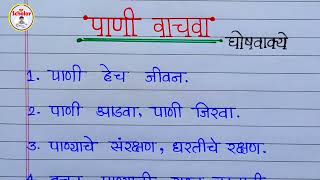 Scholar
पाणी वाचवा
घोषवाक्ये
1. पाणी हेच जीवन.
2. पाणी आडवा, पाणी जिरवा.
3. पाण्याचे संरक्षण, धरतीचे रक्षण.